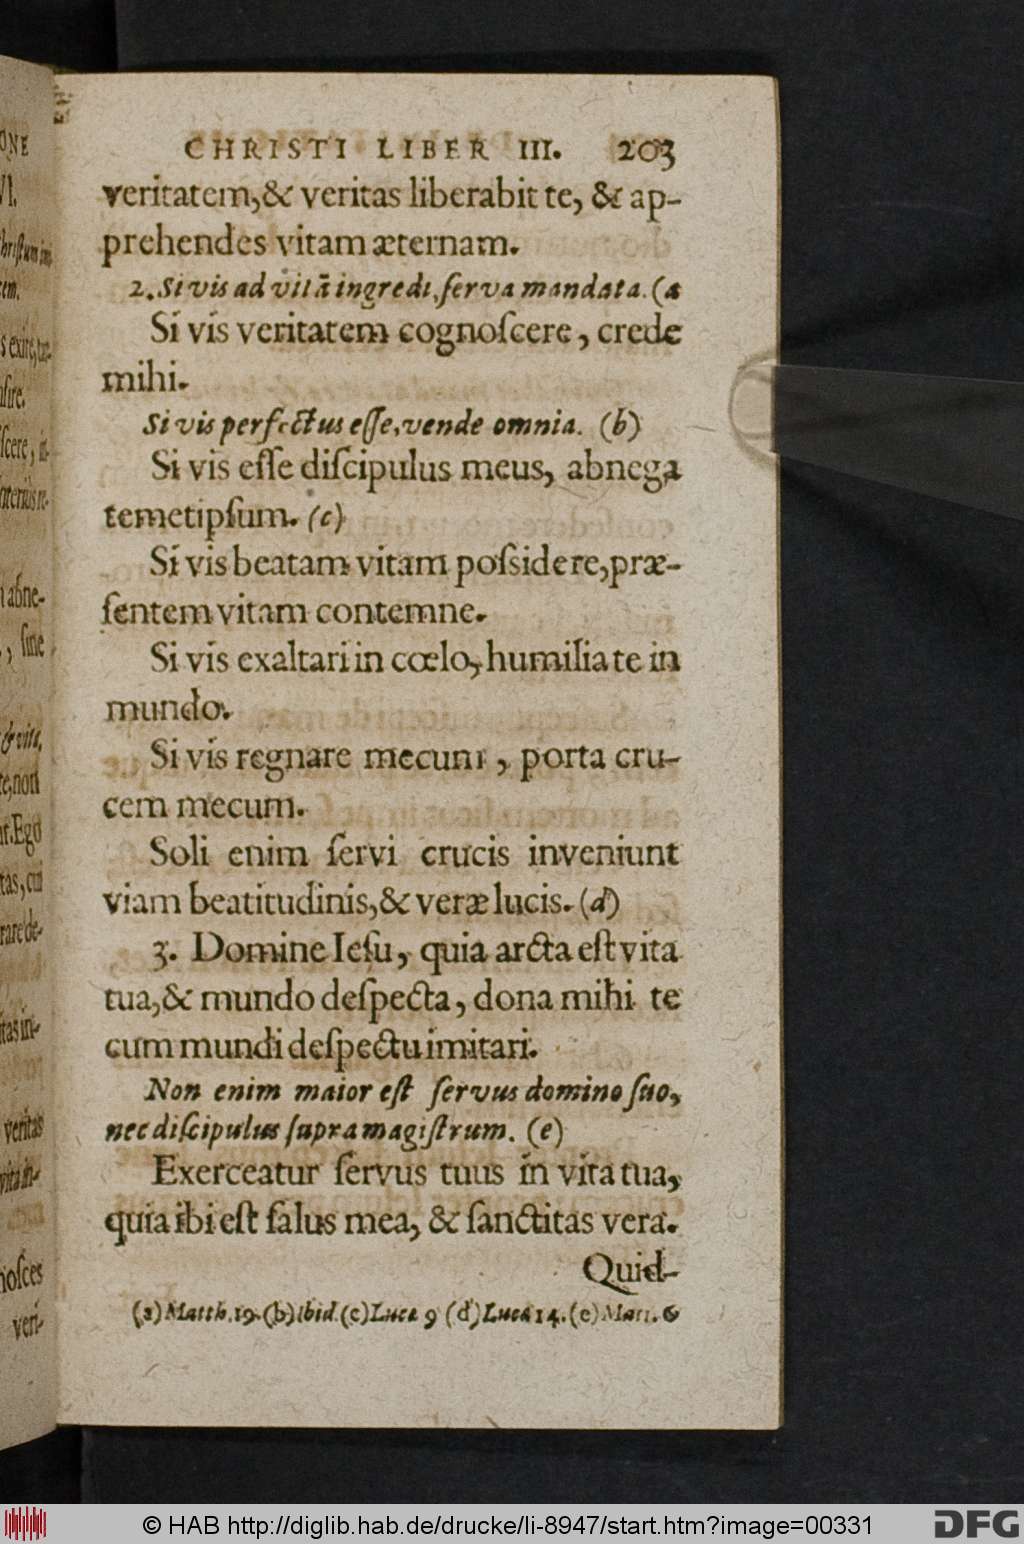 CHRISTI LIBER III. 203
veritatem,& veritas liberabit te, & ap-
prehendes vitam æternam.
2. Si vis ad vitā ingredi, ſerva mandata. (a
Si vis veritatem cognoſcere, crede
mihi.
Si vis perfectus eſſe, vende omnia. (b)
Si vis eſſe diſcipulus meus, abnega
temetipſum. (c)
Si vis beatam vitam poſsidere, præ-
ſentem vitam contemne.
Si vis exaltari in cœlo, humilia te in
mundo.
Si vis regnare mecum, porta cru-
cem mecum.
Soli enim ſervi crucis inveniunt
viam beatitudinis,& veræ lucis. (d)
3. Domine Ieſu, quia arcta eſt vita
tua,& mundo deſpecta, dona mihi te
cum mundi deſpectu imitari.
Non enim maior eſt ſervus domino ſuo,
nec diſcipulus ſupra magiſtrum. (e)
Exerceatur ſervus tuus in vita tua,
quia ibi eſt ſalus mea, & ſanctitas vera.
Quid-
(a) Matth. 19. (b) ibid. (c) Luca 9 (d) Luca 14. (e) Matt. 6
ONE
VI.
tem.
ſire.
ſcere, in-
abne-
, ſine
& vita,
te, non
Ego
tas, cui
rare de-
tas in-
veritas
vita in-
noſces
veri-
© HAB http://diglib.hab.de/drucke/li-8947/start.htm?image=00331
DFG